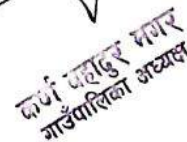 कर्ण बहादुर मगर
गाउँपालिका अध्यक्ष